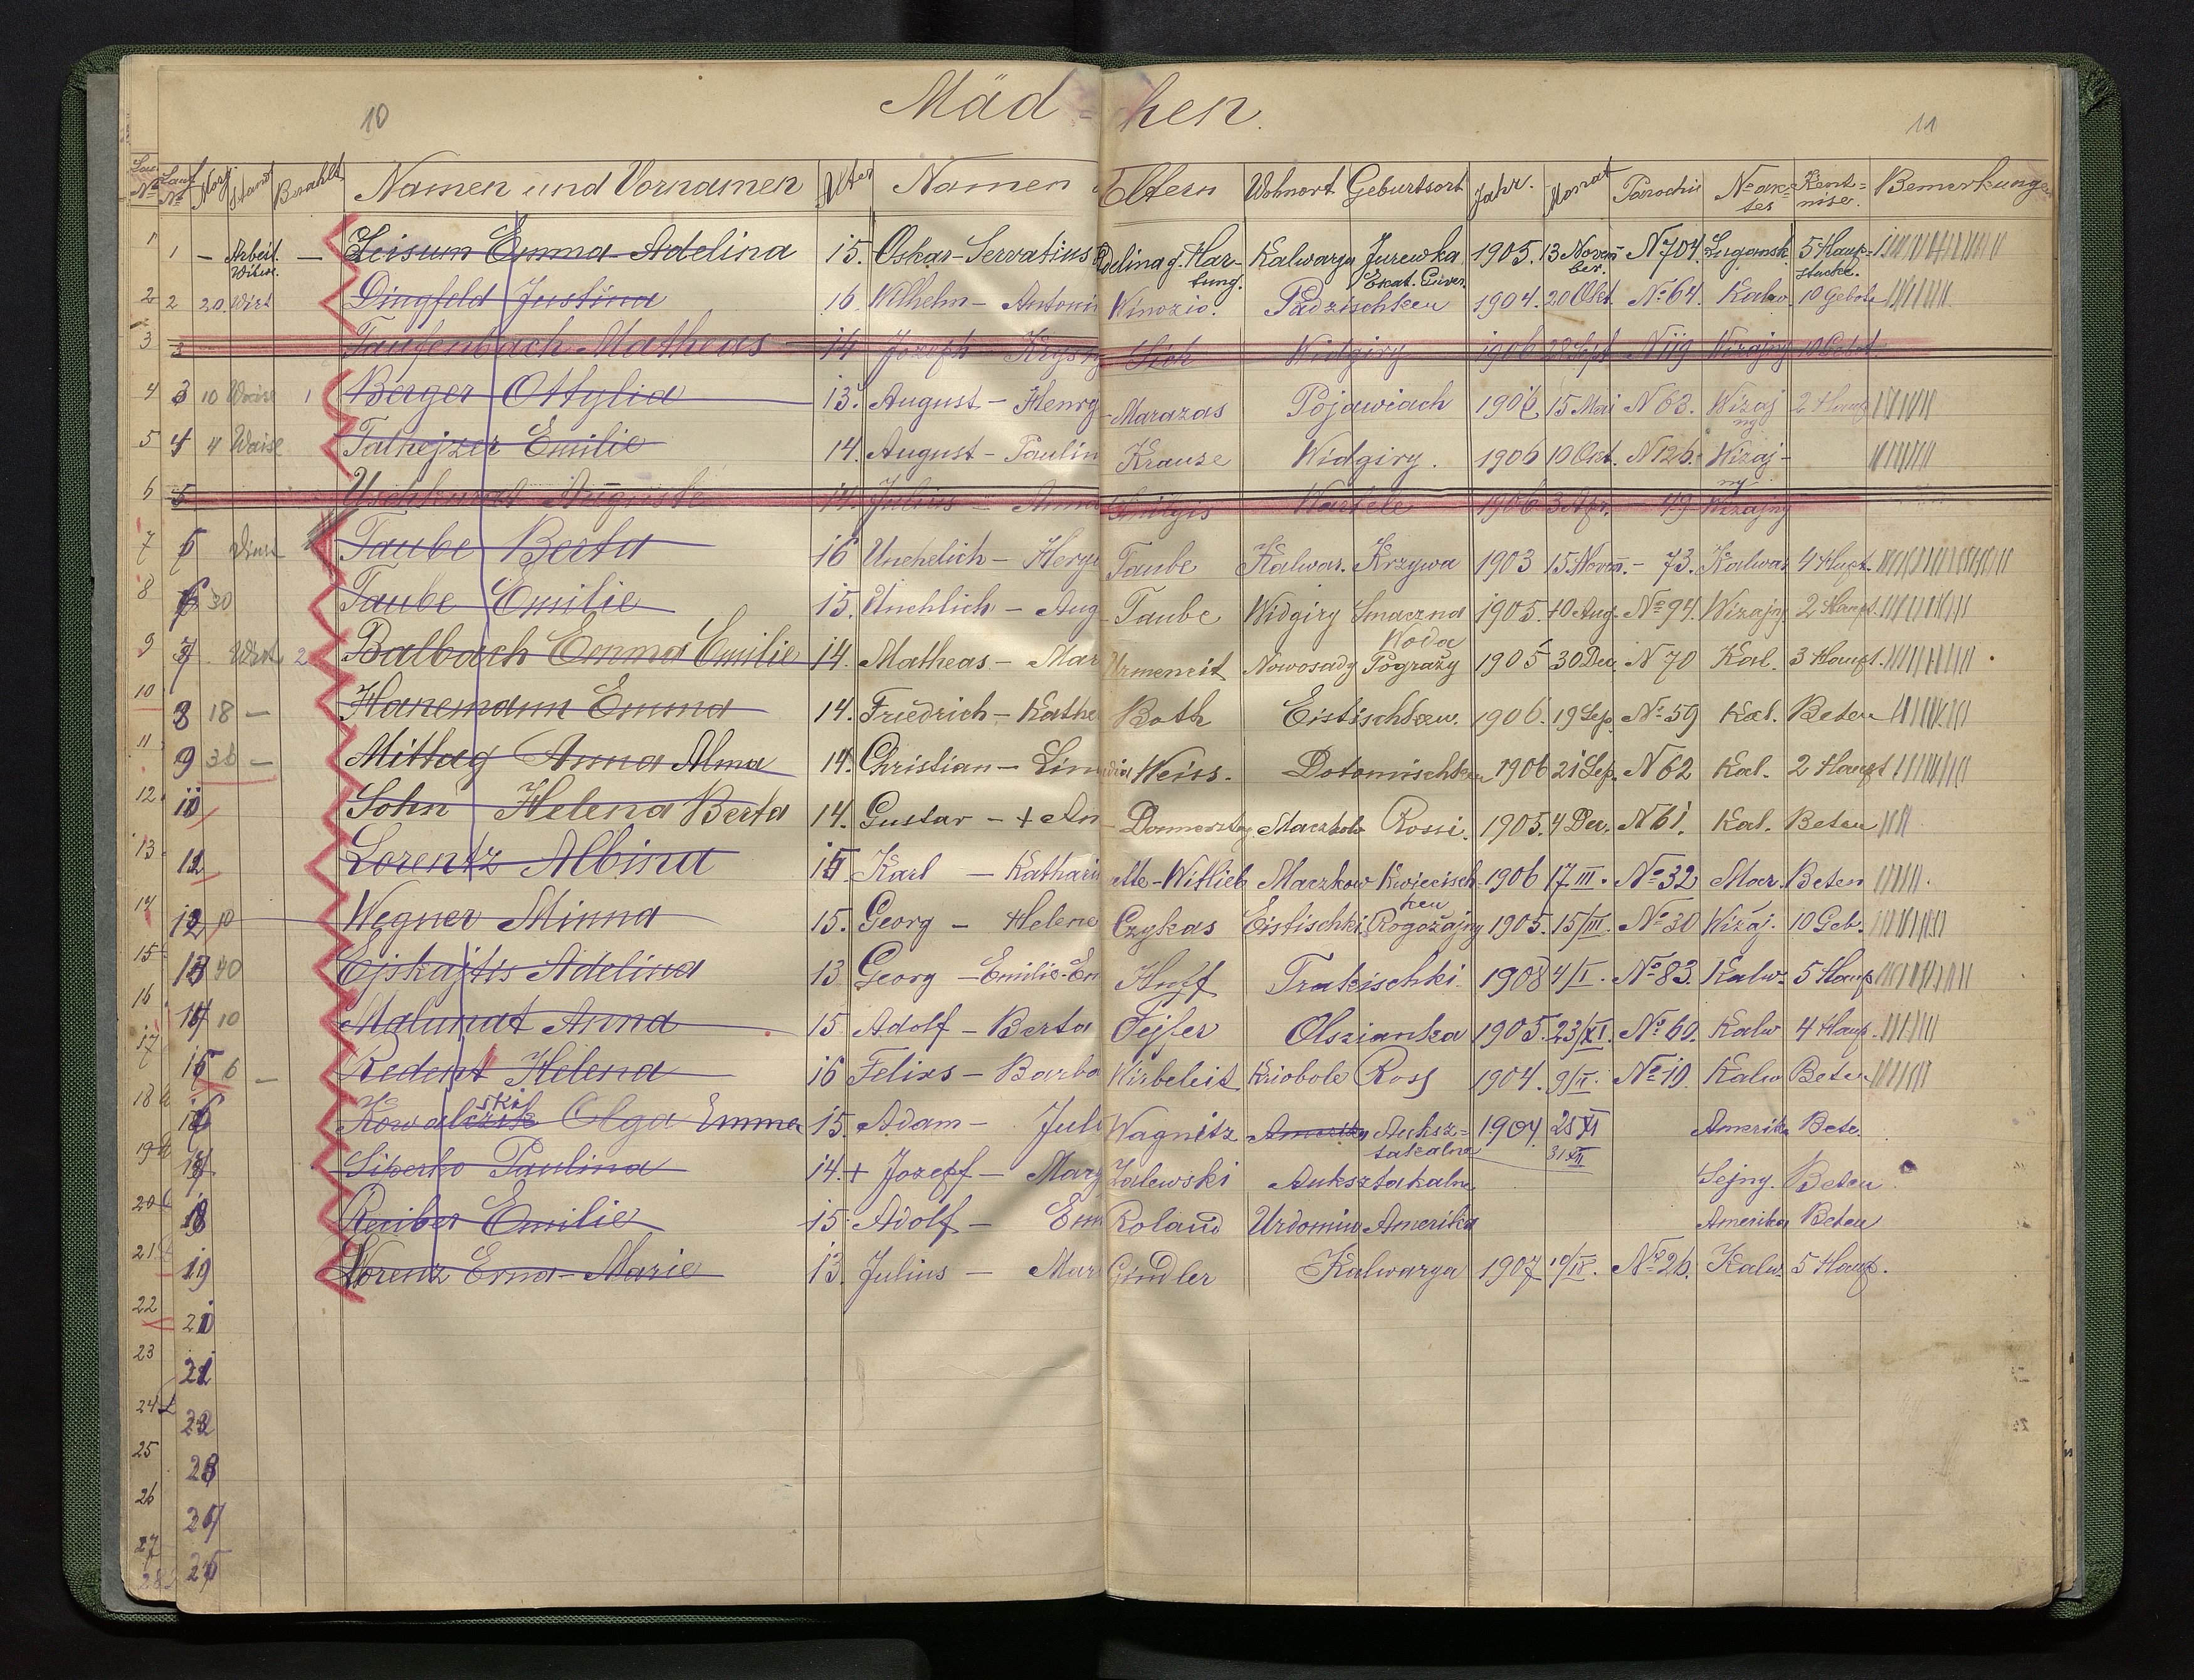 10 Mäd=hen. 11
Lau Nº Lauf Nº Morg Stand Bezahlt Namen und Vornamen Alter Namen Eltern Wohnort Geburtsort Jahr. Monat Parochie Nº ak=tes Kent=nise. Bemerkungen
1 1 — Arbeit. Witwe. — Leisum Emma Adelina 15. Oskar-Servatius Adelina g. Har-tung. Kalwarya Jurewka Ekat. Guver. 1905. 13 Novem̅ber. N 704. Lugansk. 5 Haup=stucke.
2 2 20. Wirt Dingfeld Justina 16. Wilhelm — Antonin Padzischken 1904. 20 Okt. Nº 64. Kalw 10 Gebote
3 3 Taufenbach Matheas 14 Jozeph Krysty Widgiry 1906 28 Sept N 119 Wizajny
4 3 10 Waise 1 Berger Ottylia 13. August — Henry Marazas Pojawiach 1906. 15 Mai N 63. Wizajny 2 Haupt
5 4 4 Waise Talhejzer Emilie 14. August — Paulin Krause Widgiry. 1906 10 Okt. N 126. Wizaj-ny
6 5 Auguste 14. Julius — Anna 1906 3 Apr. — 49 Wizajny
7 5 Taube Berta 16 Unehelich — Taube Kalwar. Krzywa 1903 15 Novem̅. — 73. Kalwar 4 Hupt.
8 6 30 Taube Emilie 15. Unehlich — Aug Taube Widgiry Smaczna Woda 1905. 10 Aug. Nº 94. Wizajny 2 Haupt.
9 7 Wirt 2 Balbach Emma Emilie 14. Matheas. — Mar Urmeneit Nowosady Pogražy 1905 30 Dec. N 70 Kal. 3 Haupt.
10 8 18 — Hanemann Emma 14. Friedrich — Kathe Both Eistischken. 1906. 19 Sep. Nº 59 Kal. Beten
11 9 36 — Mittag Anna Alma 14. Christian — Weiss. Dotamischken 1906 21 Sep. N 62 Kal. 2 Haupt
12. 10 Sohn Helena Berta 14. Gustav — + An Rossi. 1905. 4 Dec. N 61. Kal. Beten
13. 11 Lorentz Albina 15. Karl — Kathari Wittich Maczkow Kwiecisch-ken 1906 17 III. Nº 32 Mar. Beten
14 12 10 Wegner Minna 15. Georg — Helene Czykas Eistischki Rogožajny 1905. 15/III. Nº 30 Wizaj. 10 Geb.
15 13 40 Ejskajtis Adelina 13 Georg — Emilie-Em Huff Trakischki. 1908 4/I. Nº 83. Kalw. 5 Haup
16 14 10 Malunat Anna 15 Adolf — Berta Fejfer Olszianka 1905. 23/XI. Nº 69. Kalw 4 Haup.
17 15 6 — Redent Helena 16 Felixs — Barba Wirbeleit Kriobole Ross 1904. 9/II. Nº 19. Kalw Beten
18 16 Kowalczik ski Olga Emma 15. Adam — Juli Wagnitz Amerika Auksz=takalne 1904. 25 XI Amerika Bete.
19 17 Siperko Paulina 14. + Jozepf — Mary Zalewski Auksztakalne 31 XII Sejny. Beten
20 18 Reiber Emilie 15. Adolf — Em Roland Urdomin Amerika Amerika Beten
21 19 Lorenz Erna-Marie 13. Julius — Mar Gindler Kalwarya 1907 19/IV. Nº 26. Kalw. 5 Haup.
22 20
23 21
24 22
25 23
26 24
27 25
28